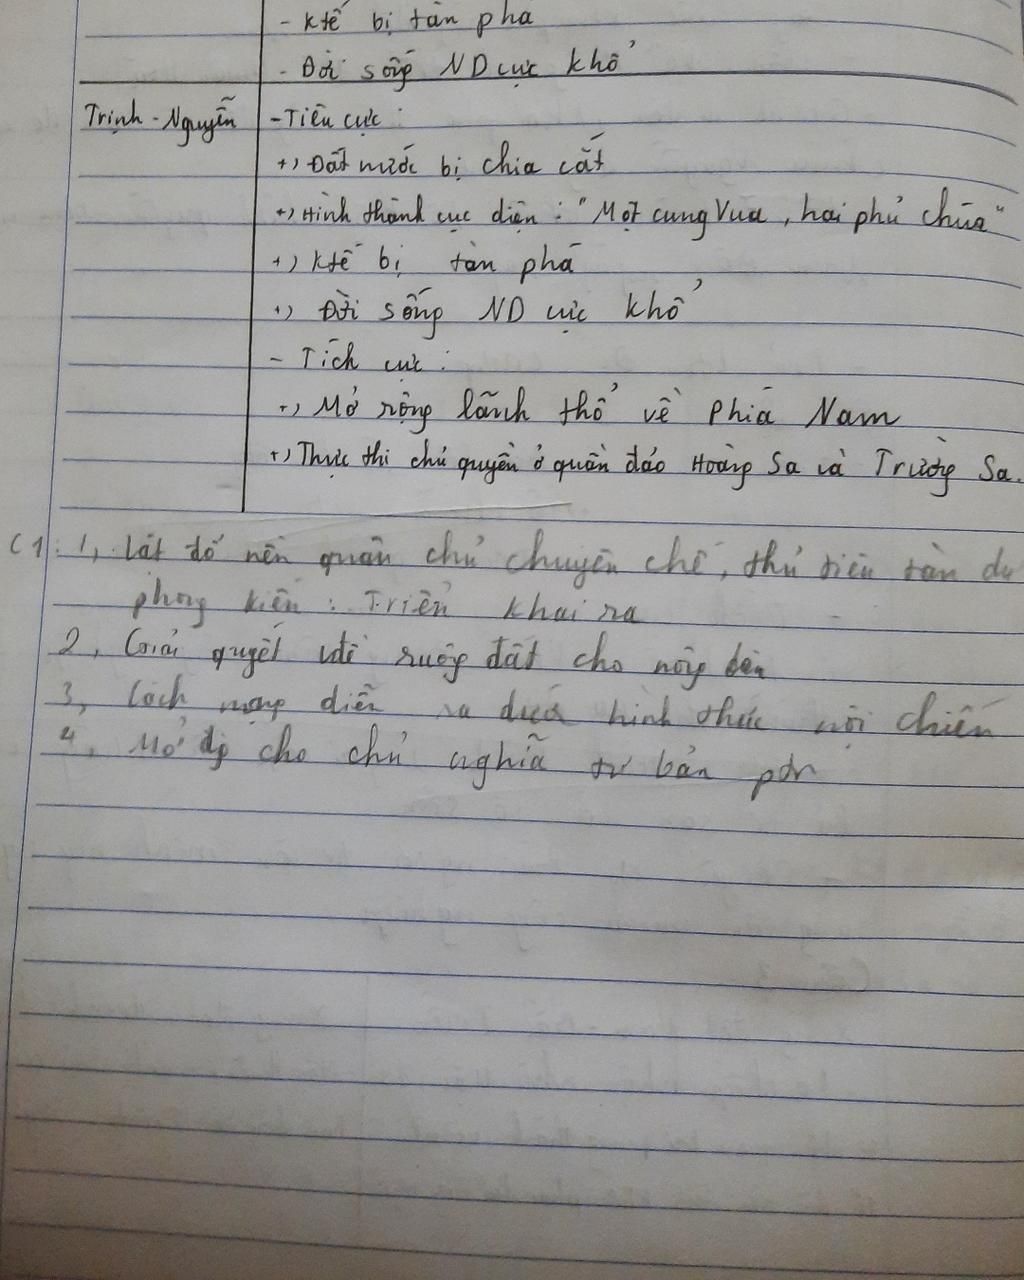 - Ktế bị tàn phá
- Đời sống ND cực khổ
Trịnh - Nguyễn
- Tiêu cực
+) Đất nước bị chia cắt
+) Hình thành cục diện : "Một cung Vua, hai phủ chúa"
+) Ktế bị tàn phá
+) Đời sống ND cực khổ
- Tích cực :
+) Mở rộng lãnh thổ về Phía Nam
+) Thực thi chủ quyền ở quần đảo Hoàng Sa và Trường Sa.
C1: 1, Lật đổ nền quân chủ chuyên chế, thủ tiêu tàn dư
phong kiến : Triển khai ra
2, Giải quyết vđề ruộng đất cho nông dân
3, Cách mạng diễn ra dưới hình thức nội chiến
4, Mở đg cho chủ nghĩa tư bản ptr